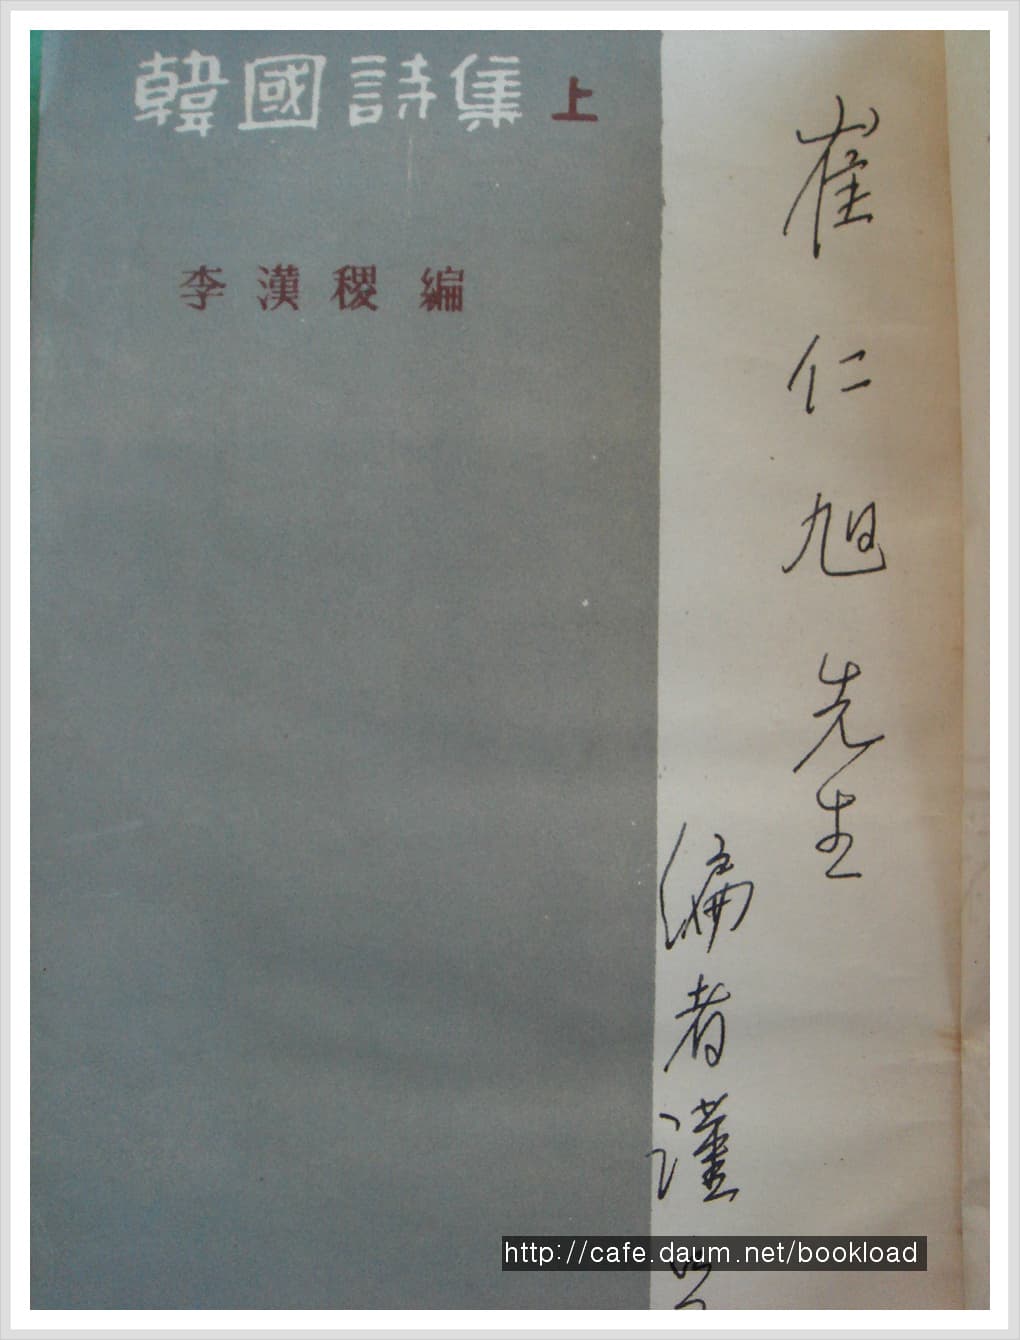 韓國詩集 上
李漢稷 編
崔仁旭先生
編者謹
http://cafe.daum.net/bookload